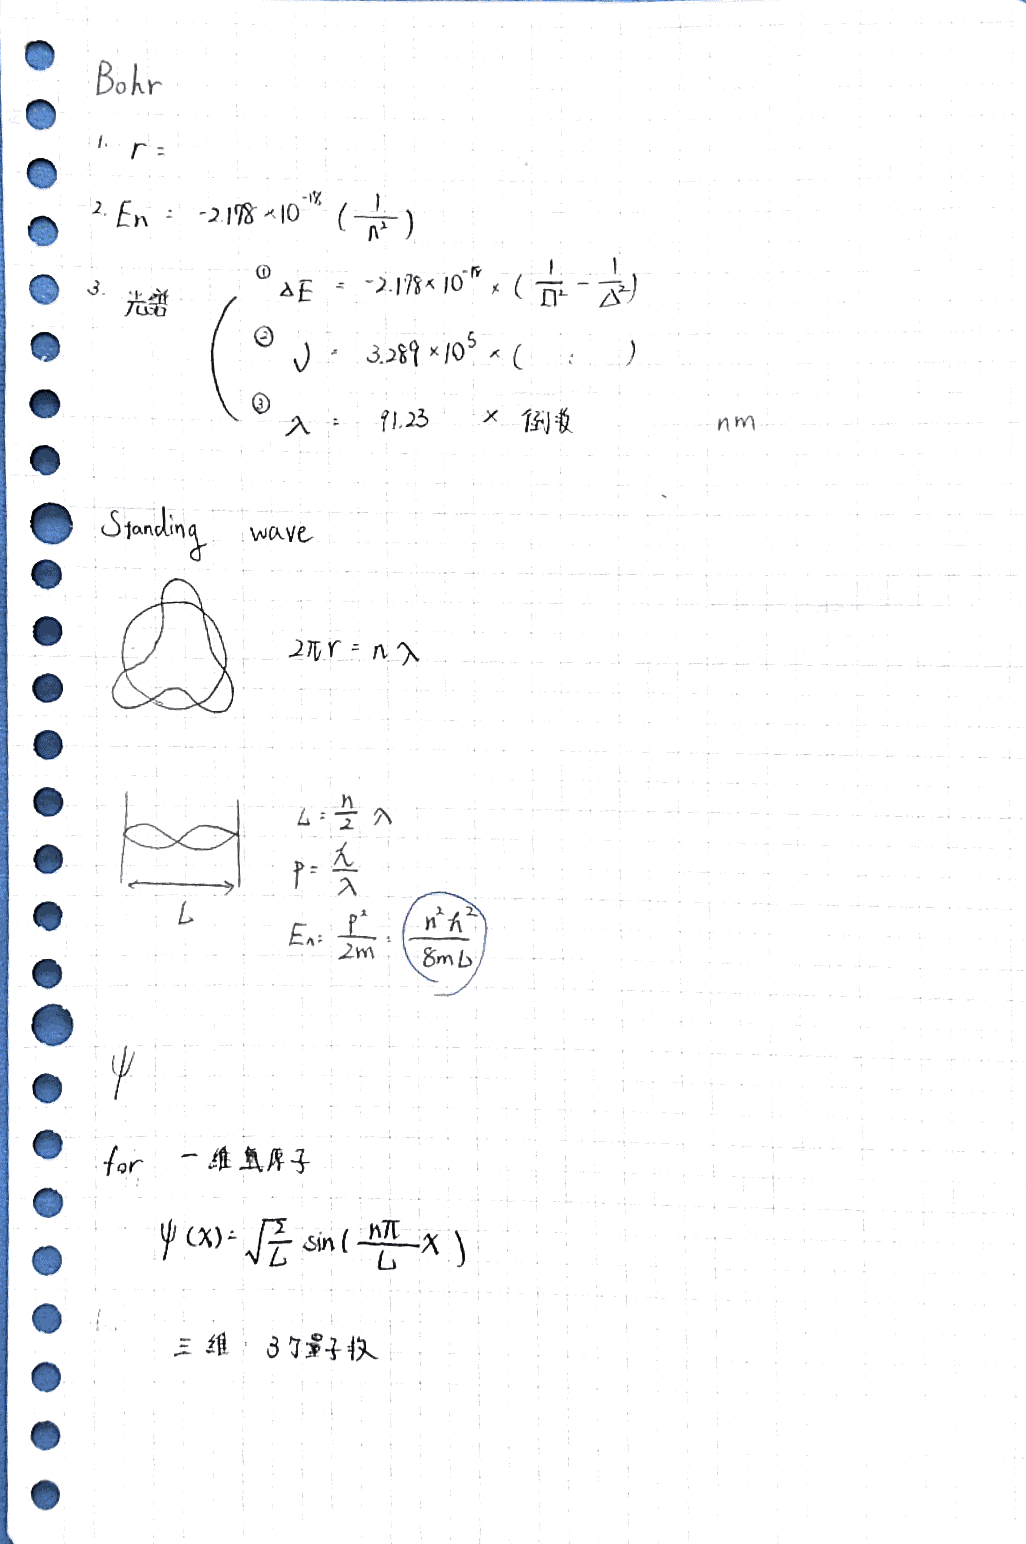 Bohr
1. r =
2. En = -2.178×10⁻¹⁸ (1/n²)
3. 光谱
① ΔE = -2.178×10⁻¹⁸ × (1/□² - 1/△²)
② ν = 3.289×10⁵ × ( : )
③ λ = 91.23 × 倒数 nm
Standing wave
2πr = nλ
L = n/2 λ
P = h/λ
L
En = P²/2m = n²h²/8mL
ψ
for 一维氢原子
ψ(x) = √(2/L) sin(nπ/L x)
三维 · 3个量子数